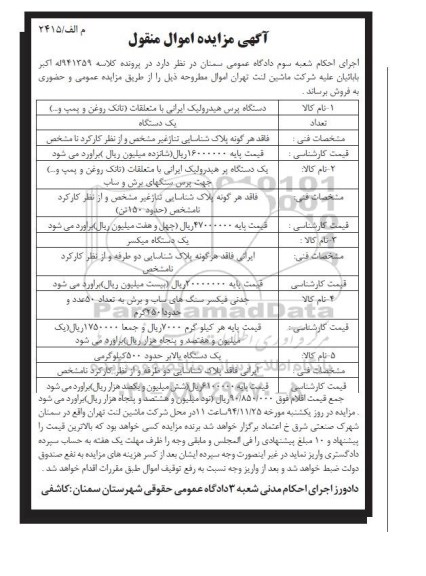 م الف/۲۴۱۵
آگهی مزایده اموال منقول
اجرای احکام شعبه سوم دادگاه عمومی سمنان در نظر دارد در پرونده کلاسه ۹۴۱۳۵۹له اکبر
بابائیان علیه شرکت ماشین لنت تهران اموال مطروحه ذیل را از طریق مزایده عمومی و حضوری
به فروش برساند.
۱-نام کالا دستگاه پرس هیدرولیک ایرانی با متعلقات (تانک روغن و پمپ و...)
تعداد یک دستگاه
مشخصات فنی: فاقد هر گونه پلاک شناسایی تناژغیر مشخص و از نظر کارکرد نا مشخص
قیمت کارشناسی: قیمت پایه ۱۶۰۰۰۰۰۰ریال(شانزده میلیون ریال )برآورد می شود
۲-نام کالا: یک دستگاه پر هیدرولیک ایرانی با متعلقات (تانک روغن و پمپ و...)
جهت پرس سنگهای برش و ساب
مشخصات فنی: فاقد هر گونه پلاک شناسایی تناژغیر مشخص و از نظر کارکرد
نامشخص (حدود ۱۵۰تن)
قیمت کارشناسی : قیمت پایه ۴۷۰۰۰۰۰۰ریال (چهل و هفت میلیون ریال)برآورد می شود
۳-نام کالا : یک دستگاه میکسر
مشخصات فنی: ایرانی فاقد هرگونه پلاک شناسایی دو طرفه و از نظر کارکرد
نامشخص
قیمت کارشناسی قیمت پایه ۲۰۰۰۰۰۰۰ریال (بیست میلیون ریال)برآورد می شود
۴-نام کالا: چدنی فیکسر سنگ های ساب و برش به تعداد ۵۰عدد و
حدودا۲۵۰کرم
قیمت کارشناسی: قیمت پایه هر کیلو گرم ۷۰۰۰ریال و جمعا ۱۷۵۰۰۰۰ریال(یک
میلیون و هفتصد و پنجاه هزار ریال)برآورد می شود
۵-نام کالا: یک دستگاه بالابر حدود ۵۰۰کیلوگرمی
مشخصات فنی ایرانی فاقد پلاک شناسایی دو طرفه و از نظر کارکرد نامشخص
قیمت کارشناسی: قیمت پایه ۶۱۰۰۰۰۰ریال(شش میلیون و یکصد هزار ریال)برآورد می شود
جمع قیمت اقلام فوق ۹۰/۸۵۰/۰۰۰ریال (نود میلیون و هشتصد و پنجاه هزار ریال)برآورد می شود
. مزایده در روز یکشنبه مورخه ۹۴/۱۱/۲۵ساعت ۱۱در محل شرکت ماشین لنت تهران واقع در سمنان
شهرک صنعتی شرق خ اعتماد برگزار خواهد شد برنده مزایده کسی خواهد بود که بالاترین قیمت را
پیشنهاد و ۱۰ مبلغ پیشنهادی را فی المجلس و مابقی وجه را ظرف مهلت یک هفته به حساب سپرده
دادگستری واریز نماید در غیر اینصورت وجه سپرده ایشان بعد از کسر هزینه های مزایده به نفع صندوق
دولت ضبط خواهد شد و بعد از واریز وجه نسبت به رفع توقیف اموال طبق مقررات اقدام خواهد شد .
دادورز اجرای احکام مدنی شعبه ۳دادگاه عمومی حقوقی شهرستان سمنان :کاشفی